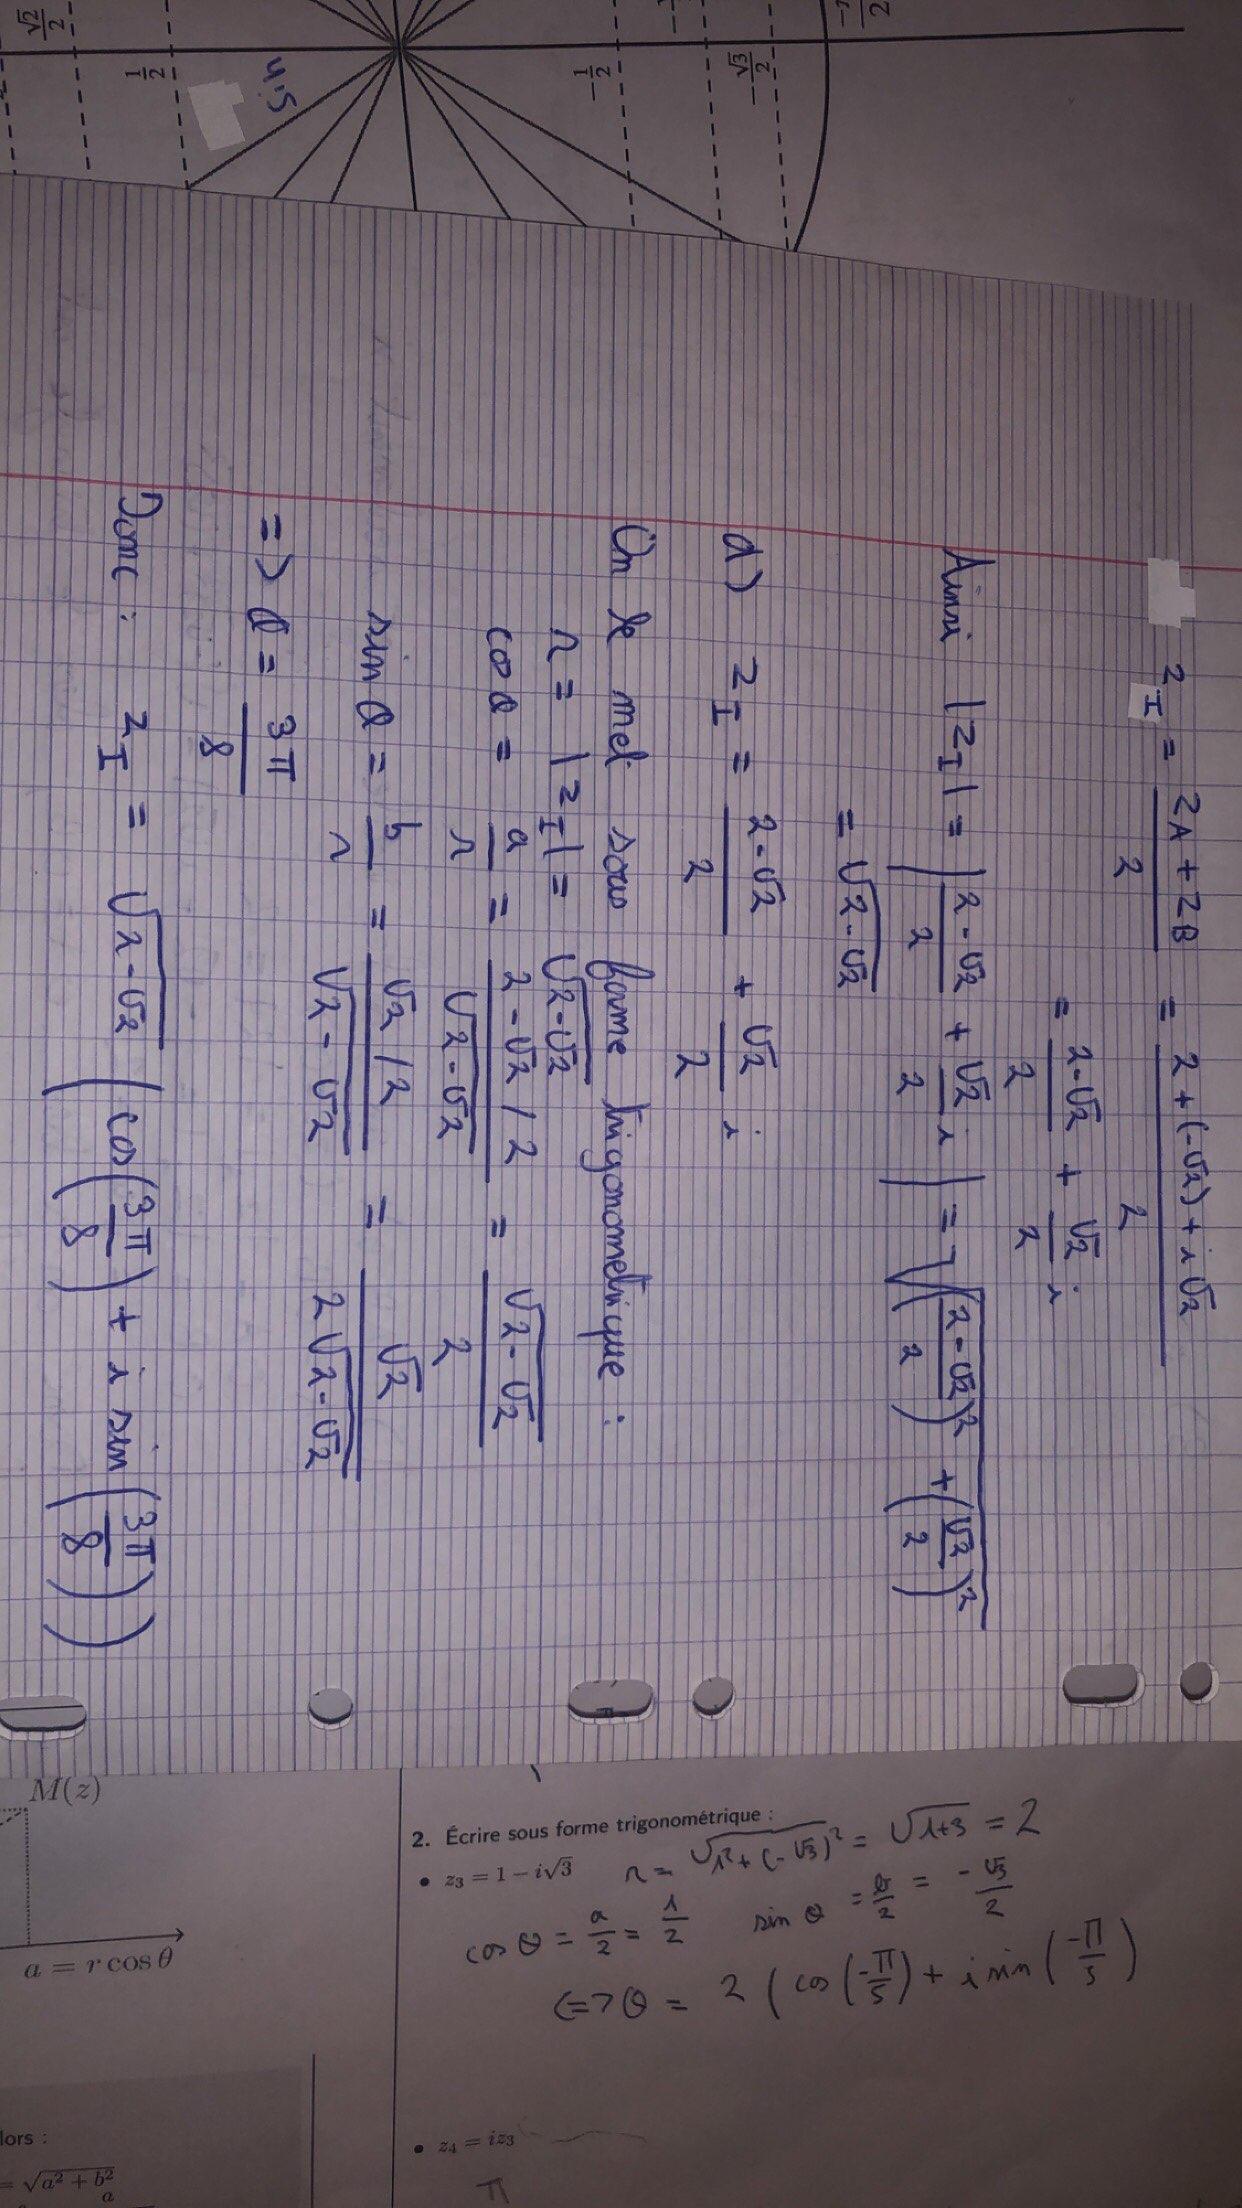 √2/2
1/2
4.5
-1/2
-√3/2
z_I = (z_A + z_B)/2 = (2 + (-√2) + i√2)/2
= (2-√2)/2 + √2/2 i
Ainsi |z_I| = |(2-√2)/2 + √2/2 i| = √(((2-√2)/2)² + (√2/2)²)
= √(2-√2)
d) z_I = (2-√2)/2 + √2/2 i
On le met sous forme trigonométrique :
r = |z_I| = √(2-√2)
cos θ = a/r = (2-√2/2)/√(2-√2) = √(2-√2)/2
sin θ = b/r = (√2/2)/√(2-√2) = √2/(2√(2-√2))
=> θ = 3π/8
Donc : z_I = √(2-√2) (cos(3π/8) + i sin(3π/8))
M(z)
a = r cos θ
lors :
= √(a² + b²)
a
2. Écrire sous forme trigonométrique :
• z₃ = 1 - i√3 r = √(1² + (-√3)²) = √(1+3) = 2
cos θ = a/2 = 1/2 sin θ = b/2 = -√3/2
<=> θ = 2 (cos(-π/3) + i sin(-π/3)
• z₄ = iz₃
π